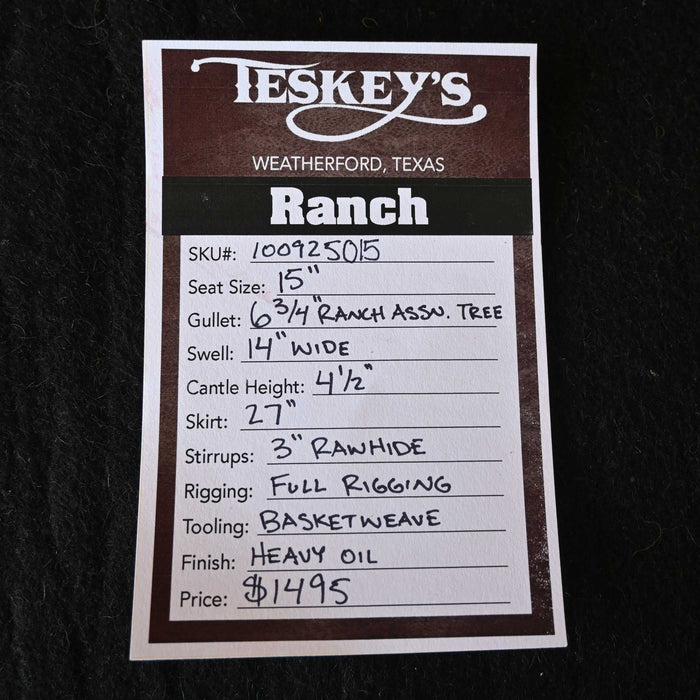 TESKEY'S
WEATHERFORD, TEXAS
Ranch
SKU#: 100925015
Seat Size: 15"
Gullet: 6 3/4" RANCH ASSN. TREE
Swell: 14" WIDE
Cantle Height: 4 1/2"
Skirt: 27"
Stirrups: 3" RAWHIDE
Rigging: FULL RIGGING
Tooling: BASKETWEAVE
Finish: HEAVY OIL
Price: $1495